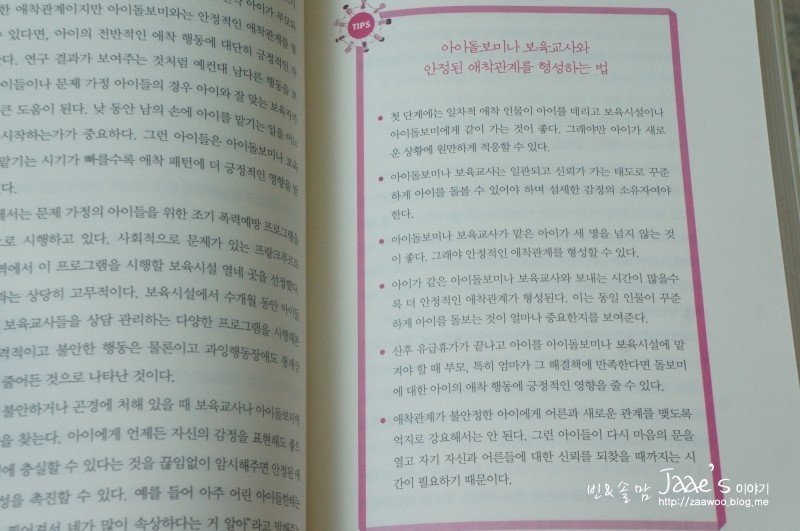 한 애착관계이지만 아이돌보미와는 안정적인 애착관계를
수 있다면, 아이의 전반적인 애착 행동에 대단히 긍정적인
다. 연구 결과가 보여주는 것처럼 예컨대 남다른 행동을
아이들이나 문제 가정 아이들의 경우 아이와 잘 맞는 보육자가
큰 도움이 된다. 낮 동안 남의 손에 아이를 맡기는 일을 어느
시작하는가가 중요하다. 그런 아이들은 아이돌보미나 보육
맡기는 시기가 빠를수록 애착 패턴에 더 긍정적인 영향을
다.
에서는 문제 가정의 아이들을 위한 조기 폭력예방 프로그램을
으로 시행하고 있다. 사회적으로 문제가 있는 프랑크푸르트
역에서 이 프로그램을 시행할 보육시설 열네 곳을 선정했다.
과는 상당히 고무적이다. 보육시설에서 수개월 동안 아이들
보육교사들을 상담 관리하는 다양한 프로그램을 시행해온
격적이고 불안한 행동은 물론이고 과잉행동장애도
줄어든 것으로 나타난 것이다.
불안하거나 곤경에 처해 있을 때 보육교사나 아이돌보미에
을 찾는다. 아이에게 언제든 자신의 감정을 표현해도 좋으
에 충실할 수 있다는 것을 끊임없이 암시해주면 안정된 애
성을 촉진할 수 있다. 예를 들어 아주 어린 아이들한테는
네가 많이 속상하다는 거 알아"라고 말해주
TIPS
아이돌보미나 보육교사와
안정된 애착관계를 형성하는 법
• 첫 단계에는 일차적 애착 인물이 아이를 데리고 보육시설이나
아이돌보미에게 같이 가는 것이 좋다. 그래야만 아이가 새로
운 상황에 원만하게 적응할 수 있다.
• 아이돌보미나 보육교사는 일관되고 신뢰가 가는 태도로 꾸준
하게 아이를 돌볼 수 있어야 하며 섬세한 감정의 소유자여야
한다.
• 아이돌보미나 보육교사가 맡은 아이가 세 명을 넘지 않는 것
이 좋다. 그래야 안정적인 애착관계를 형성할 수 있다.
• 아이가 같은 아이돌보미나 보육교사와 보내는 시간이 많을수
록 더 안정적인 애착관계가 형성된다. 이는 동일 인물이 꾸준
하게 아이를 돌보는 것이 얼마나 중요한지를 보여준다.
• 산후 유급휴가가 끝나고 아이를 아이돌보미나 보육시설에 맡
겨야 할 때 부모, 특히 엄마가 그 해결책에 만족한다면 돌보미
에 대한 아이의 애착 행동에 긍정적인 영향을 줄 수 있다.
• 애착관계가 불안정한 아이에게 어른과 새로운 관계를 맺도록
억지로 강요해서는 안 된다. 그런 아이들이 다시 마음의 문을
열고 자기 자신과 어른들에 대한 신뢰를 되찾을 때까지는 시
간이 필요하기 때문이다.
빈&솔 맘 Jaae's 이야기
http://zaawoo.blog.me